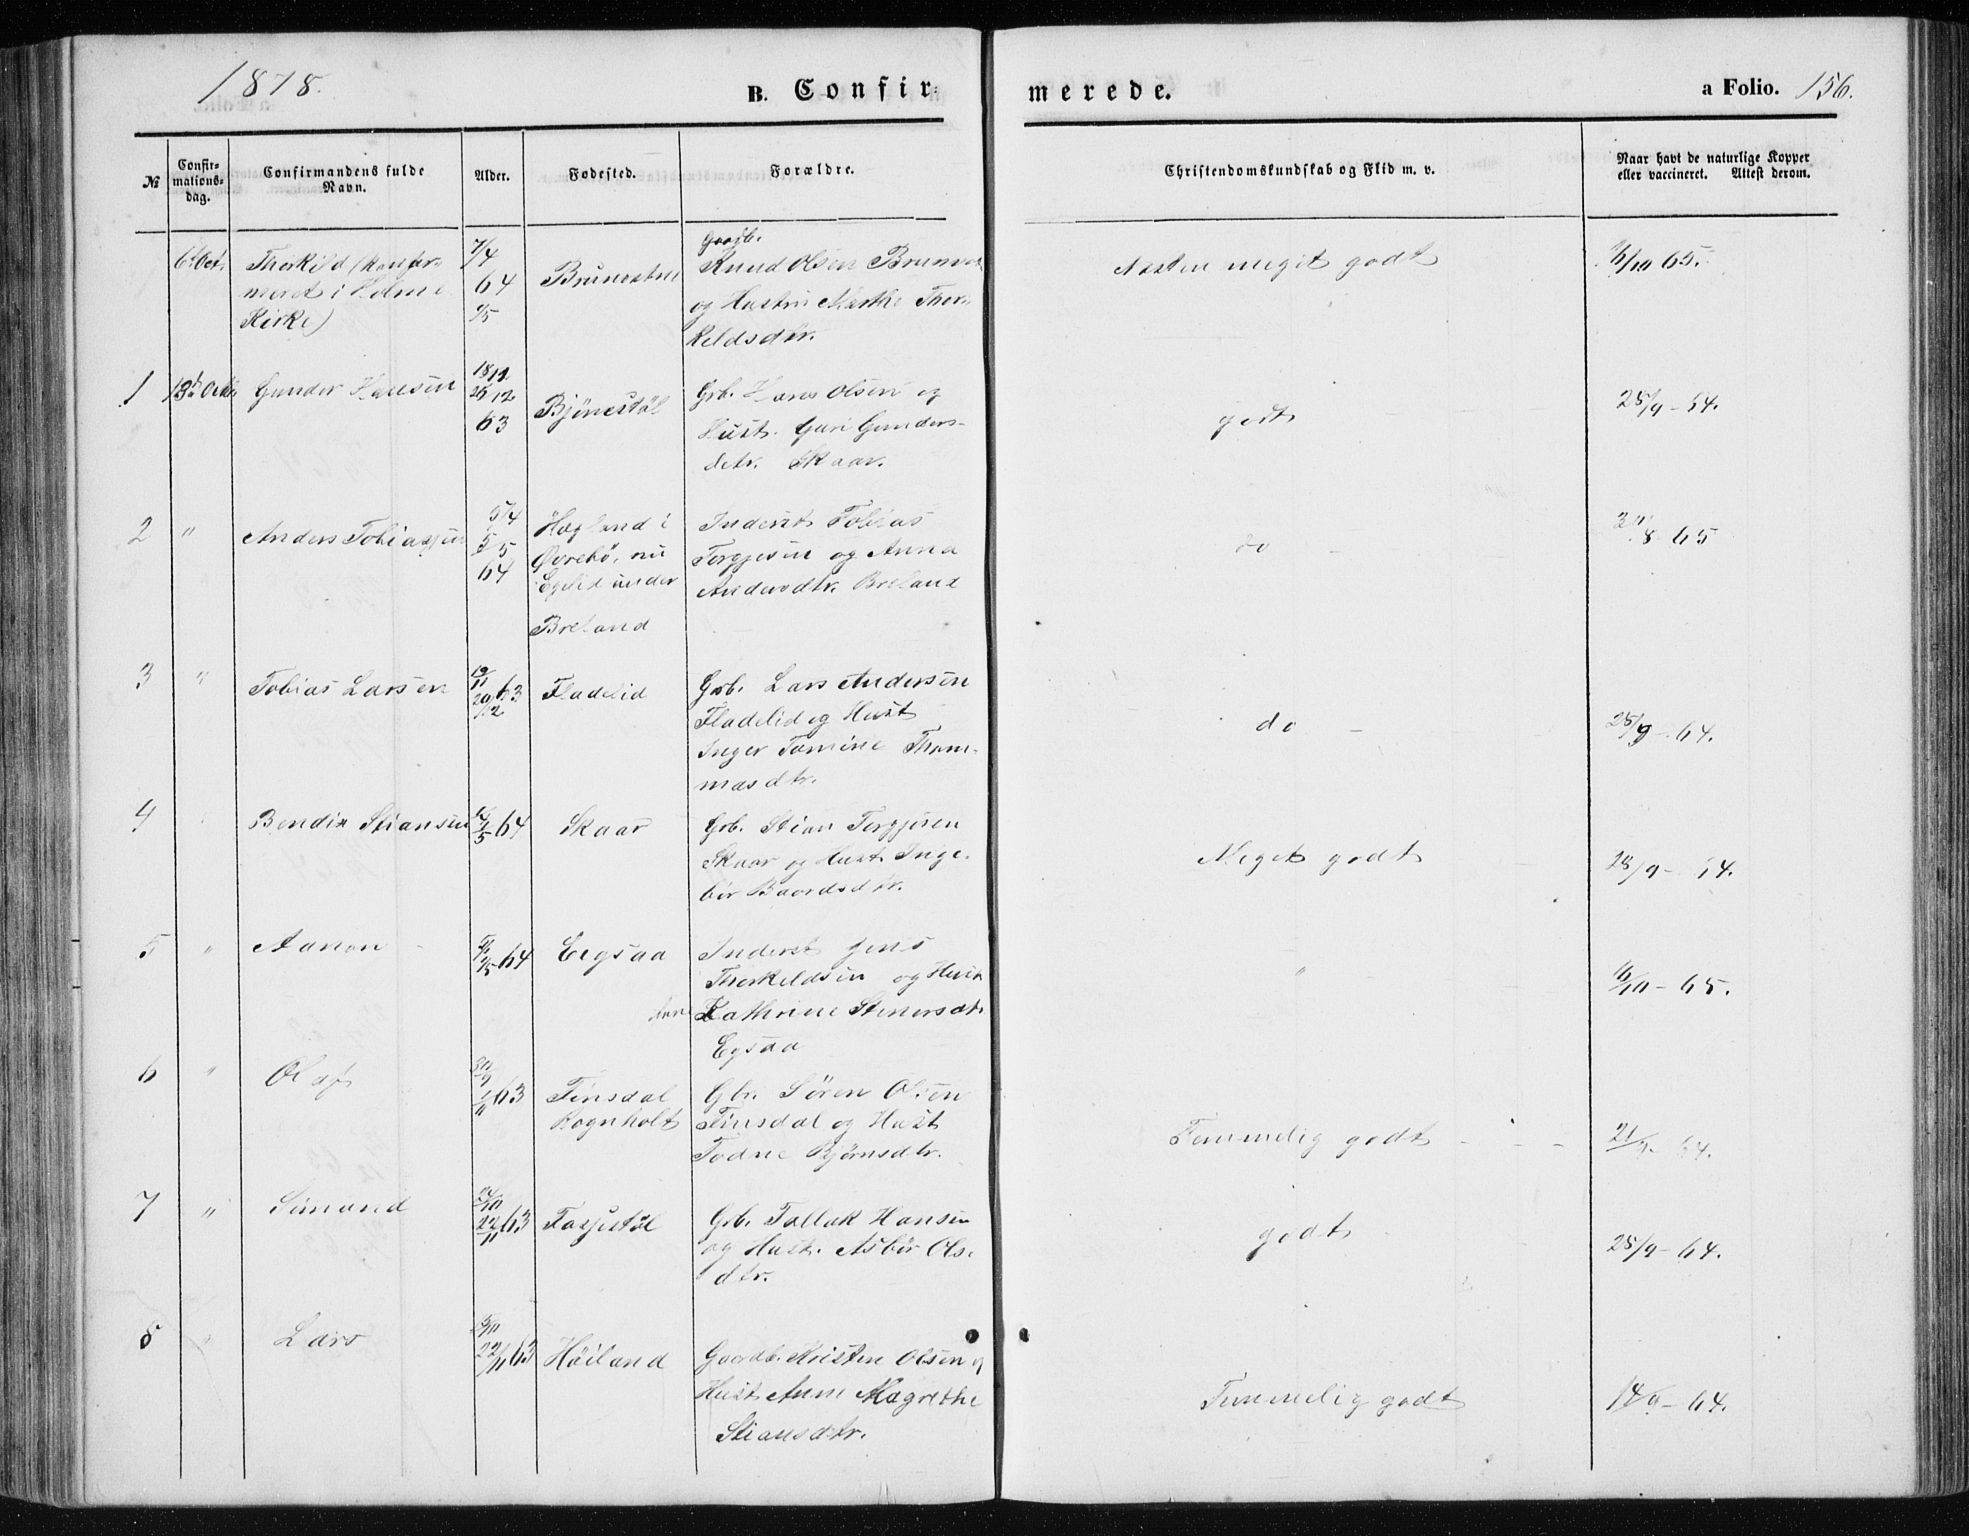 1878.
B. Confir-
merede.
a Folio. 156.
№
Confir-
mations-
dag.
Confirmandens fulde
Navn.
Alder.
Fødested.
Forældre.
Christendomskundskab og Flid m. v.
Naar havt de naturlige Kopper
eller vaccineret. Attest derom.
6te Oct. Thorkild (konfir-
meret i Holme
Kirke)
7/4
64
Gaardb.
Knud Olsen
og Hustru Marthe Thor-
keldsdtr.
Næsten meget godt
/10 65.
1 13de Octbr Gunder Hansen
12
63
Bjönestöl
Grb. Hans Olsen og
Hust. Guri Gunders-
detr. Skaar.
godt
25/9 - 64.
2 " Anders Tobiassen
5/4
5/5
64
Hægland i
Øvrebö, nu
Egelid under
Breland
Inderst Tobias
Torgjesen og Anna
Andersdtr. Breland
do -
8 - 65
3 " Tobias Larsen
11
20/12 63
Fladelid
Grb. Lars Andersen
Fladelid og Hust
Inger Tomine Thom-
masdtr.
do -
25/9 - 64.
4 Bendix Stiansen
5 64
Skaar
Grb. Stian Torgjesen
Skaar og Hust. Inge-
bör Baardsdtr.
Meget godt
25/9 - 64.
5 " Aanon
64
Eegsaa
Inderst Jens
Thorkeldsen og
Kathrine Stenersdtr
Egsaa
"
16/10 - 65.
6 " Olaf
63
Finsdal
Rognholt
Gbr. Sören Olsen
Finsdal og Hust
Todne Bjørnsdtr.
Temmelig godt - - -
21/9 - 64.
7 " Simund
22/11 63
Fasjestöl
Grb. Tallak Hansen
og Hust. Asbör Ols-
dtr.
godt
25/9 - 64.
8 " Lars
22/11 63
Höiland
Gaardb. Kristen Olsen og
Hust Anne Magrethe
Stiansdtr.
Temmelig godt
14/9 - 64.